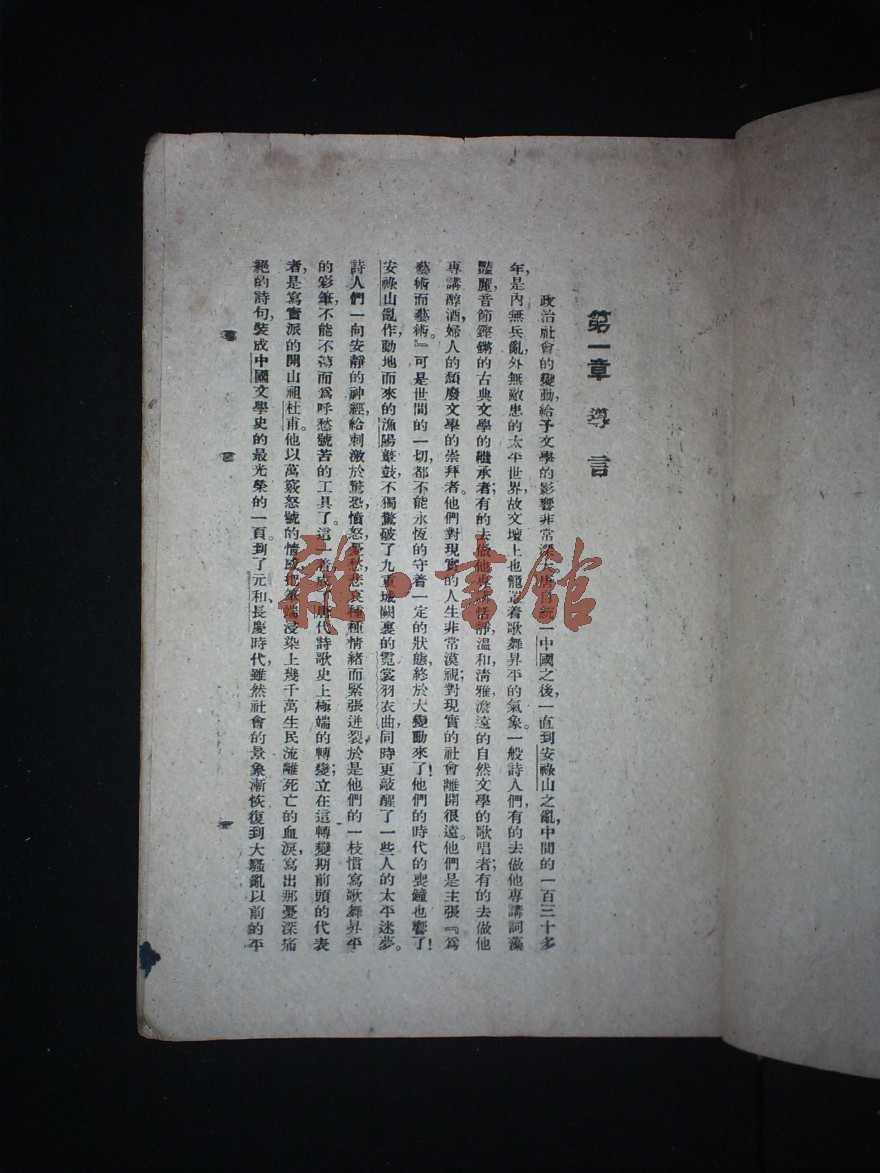 第一章 導言
政治社會的變動給予文學的影響非常深大唐自統一中國之後，一直到安祿山之亂，中間的一百三十多
年，是內無兵亂，外無敵患的太平世界，故文壇上也籠罩着歌舞昇平的氣象。一般詩人們，有的去做他專講詞藻
豔麗，音節鏗鏘的古典文學的繼承者；有的去做他專講恬靜，溫和，清雅，澹遠的自然文學的歌唱者；有的去做他
專講醇酒，婦人的頹廢文學的崇拜者。他們對現實的人生非常漠視；對現實的社會離開很遠。他們是主張『爲
藝術而藝術。』可是世間的一切，都不能永恆的守着一定的狀態，終於大變動來了！他們的時代的喪鐘也響了！
安祿山亂作，動地而來的漁陽鼙鼓，不獨驚破了九重城闕裏的霓裳羽衣曲，同時更敲醒了一些人的太平迷夢。
詩人們一向安靜的神經，給刺激於驚恐，憤怒，憂愁，悲哀種種情緒而緊張迸裂，於是他們的一枝慣寫歌舞昇平
的彩筆，不能不轉而爲呼愁號苦的工具了。這一着成了唐代詩歌史上極端的轉變；立在這轉變期前頭的代表
者，是寫實派的開山祖杜甫。他以萬竅怒號的情感，把筆端浸染上幾千萬生民流離死亡的血淚，寫出那憂深痛
絕的詩句，裝成中國文學史的最光榮的一頁。到了元和、長慶時代，雖然社會的景象漸恢復到大騷亂以前的平
雜·書館